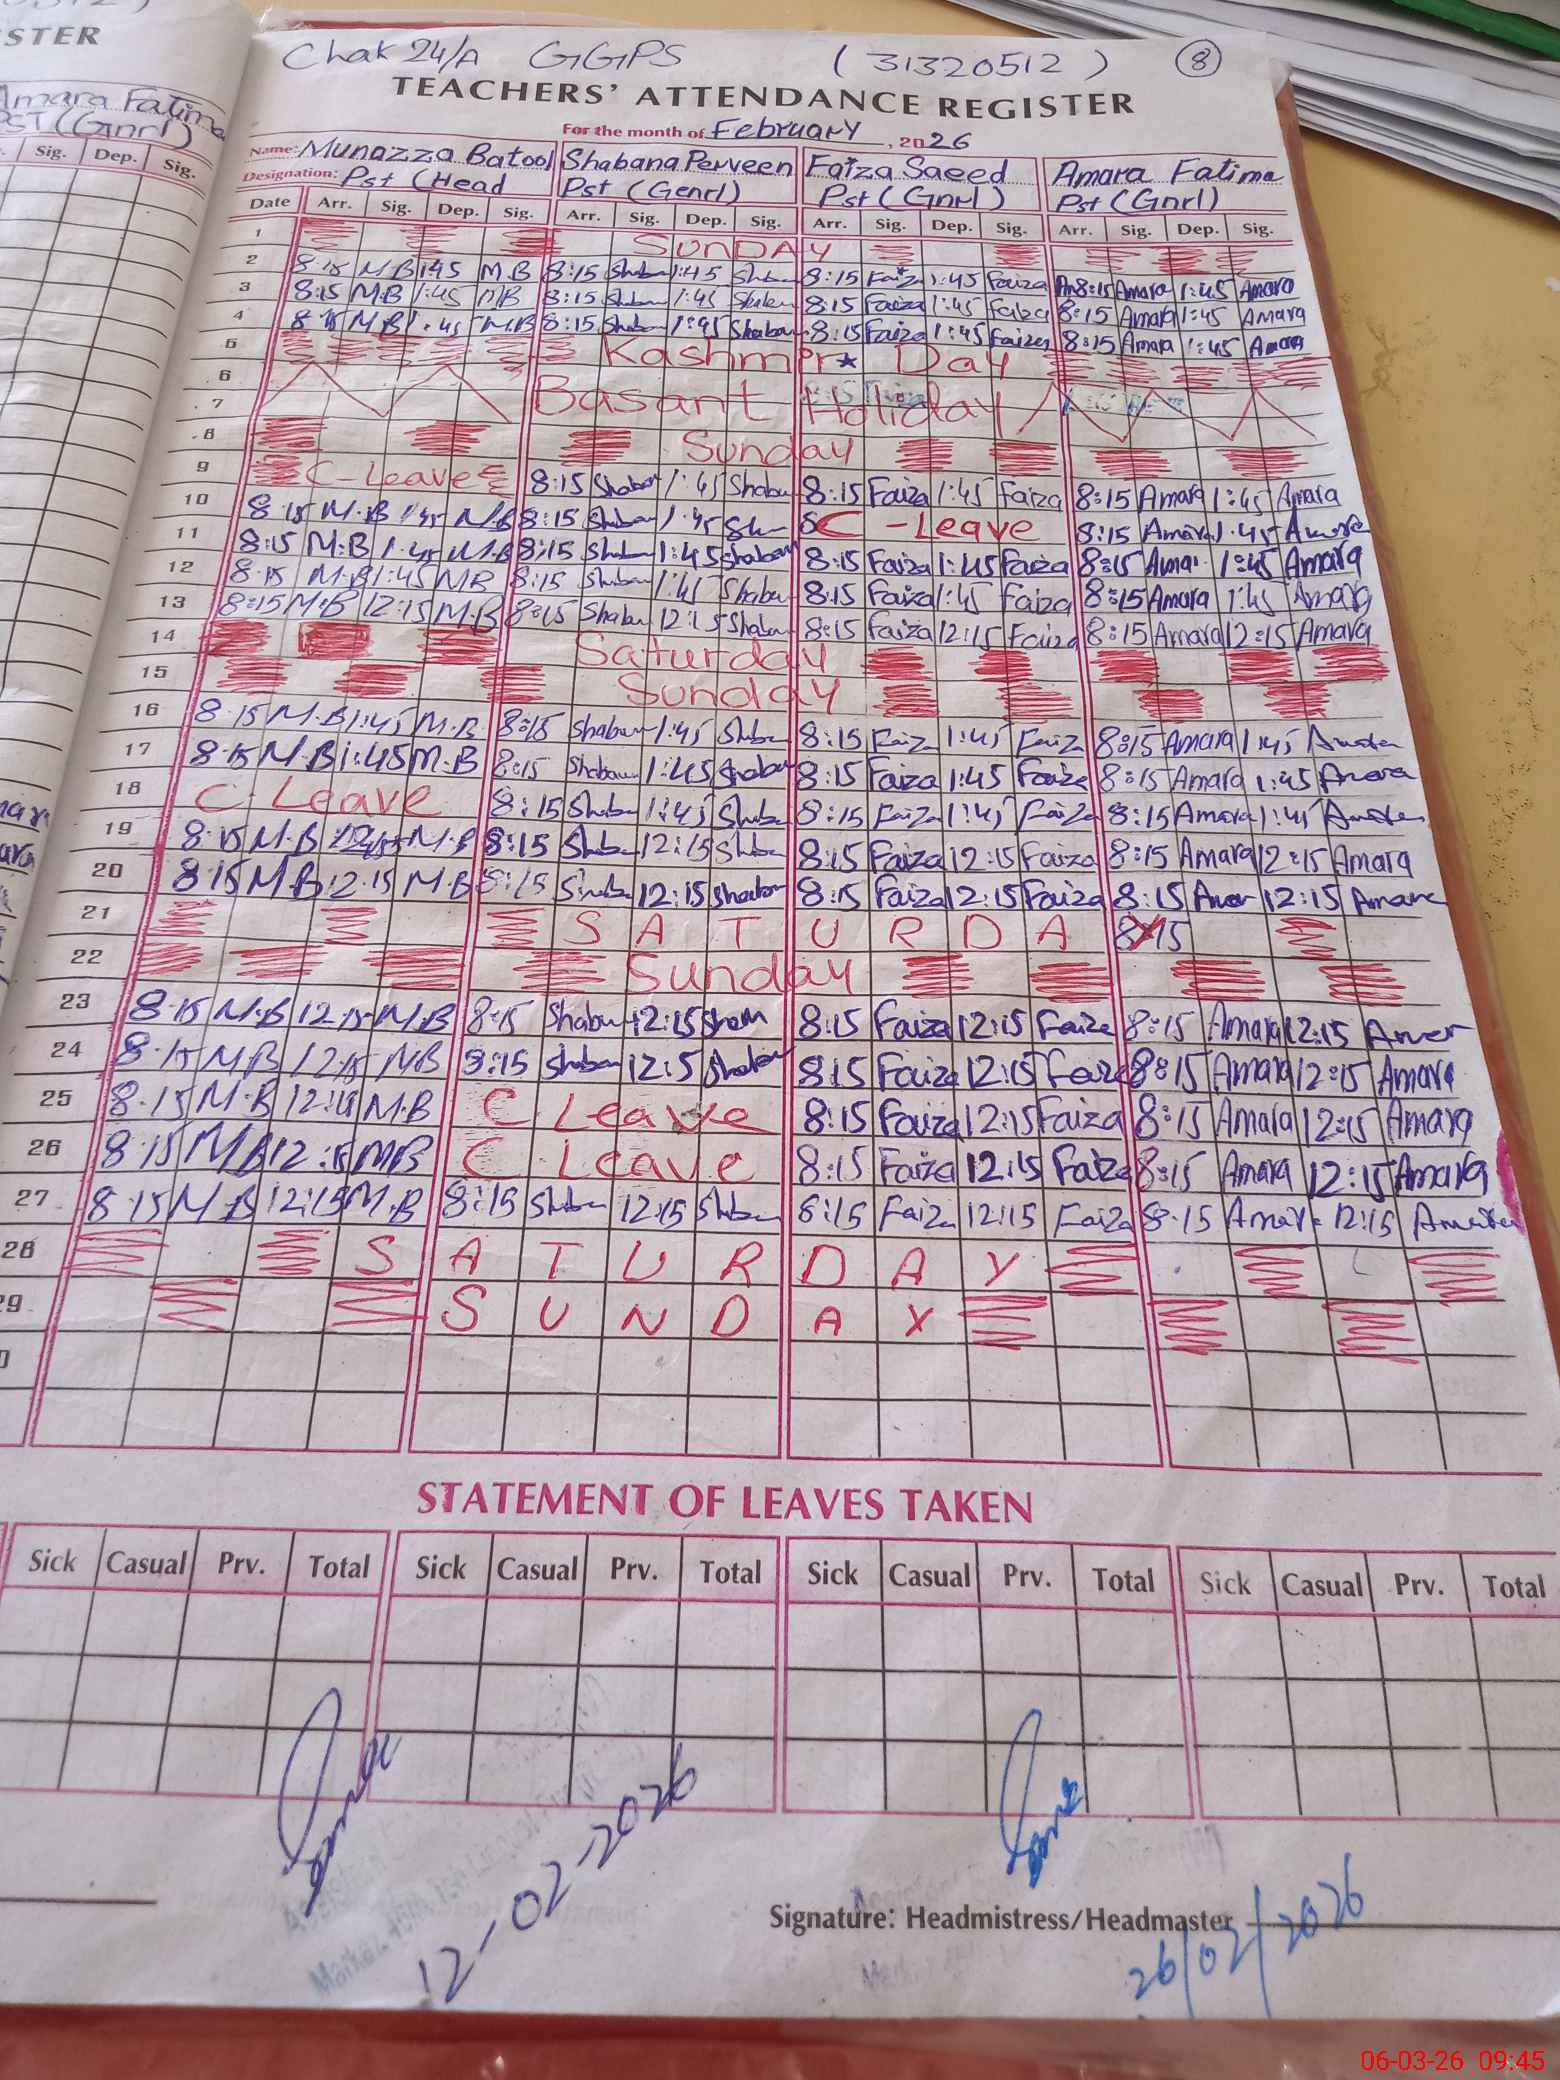 STER
Amara Fatima
PST (Gnrl)
Sig. Dep. Sig.
Chak 24/A GGPS (31320512) 8
TEACHERS' ATTENDANCE REGISTER
For the month of February, 2026
Name: Munazza Batool Shabana Perveen Faiza Saeed Amara Fatima
Designation: Pst (Head Pst (Genrl) Pst (Gnrl) Pst (Gnrl)
Date Arr. Sig. Dep. Sig. Arr. Sig. Dep. Sig. Arr. Sig. Dep. Sig. Arr. Sig. Dep. Sig.
1 SUNDAY
2 8:15 M.B 145 M.B 8:15 Shaban 1:45 Shaban 8:15 Faiza 1:45 Faiza 8:15 Amara 1:45 Amara
3 8:15 M.B 1:45 M.B 8:15 Shaban 1:45 Shaban 8:15 Faiza 1:45 Faiza 8:15 Amara 1:45 Amara
4 8:15 M.B 1:45 M.B 8:15 Shaban 1:45 Shaban 8:15 Faiza 1:45 Faiza 8:15 Amara 1:45 Amara
5 Kashmir Day
6
7 Basant Holiday
8 Sunday
9 C-Leave 8:15 Shaban 1:45 Shaban 8:15 Faiza 1:45 Faiza 8:15 Amara 1:45 Amara
10 8:15 M.B 1:45 M.B 8:15 Shaban 1:45 C-Leave 8:15 Amara 1:45 Amara
11 8:15 M.B 1:45 M.B 8:15 Shaban 1:45 Shaban 8:15 Faiza 1:45 Faiza 8:15 Amar 1:45 Amara
12 8:15 M.B 1:45 MB 8:15 Shaban 1:45 Shaban 8:15 Faiza 1:45 Faiza 8:15 Amara 1:45 Amara
13 8:15 M.B 12:15 M.B 8:15 Shaban 12:15 Shaban 8:15 Faiza 12:15 Faiza 8:15 Amara 12:15 Amara
14 Saturday
15 Sunday
16 8:15 M.B 1:45 M.B 8:15 Shaban 1:45 Shaban 8:15 Faiza 1:45 Faiza 8:15 Amara 1:45
17 8:15 M.B 1:45 M.B 8:15 Shaban 1:45 Shaban 8:15 Faiza 1:45 Faiza 8:15 Amara 1:45 Amara
18 C-Leave 8:15 Shaban 1:45 Shaban 8:15 Faiza 1:45 Faiza 8:15 Amara 1:45
19 8:15 M.B M.B 8:15 Shaban 12:15 Shaban 8:15 Faiza 12:15 Faiza 8:15 Amara 12:15 Amara
20 8:15 MB 12:15 M.B 8:15 Shaban 12:15 Shaban 8:15 Faiza 12:15 Faiza 8:15 12:15 Amara
21 S A T U R D A Y
22 Sunday
23 8:15 M.B 12:15 M.B 8:15 Shaban 12:15 8:15 Faiza 12:15 Faiza 8:15 Amara 12:15
24 8:15 MB 12:15 MB 8:15 Shaban 12:5 Shaban 8:15 Faiza 12:15 Faiza 8:15 Amara 12:15 Amara
25 8:15 M.B 12:15 M.B C Leave 8:15 Faiza 12:15 Faiza 8:15 Amara 12:15 Amara
26 8:15 MB 12:15 MB C Leave 8:15 Faiza 12:15 Faiza 8:15 Amara 12:15 Amara
27 8:15 MB 12:15 M.B 8:15 Shaban 12:15 Shaban 8:15 Faiza 12:15 Faiza 8:15 Amara 12:15
28 S A T U R D A Y
29 S U N D A Y
STATEMENT OF LEAVES TAKEN
Sick Casual Prv. Total Sick Casual Prv. Total Sick Casual Prv. Total Sick Casual Prv. Total
12-02-2026
Signature: Headmistress/Headmaster
26/02/2026
06-03-26 09:45